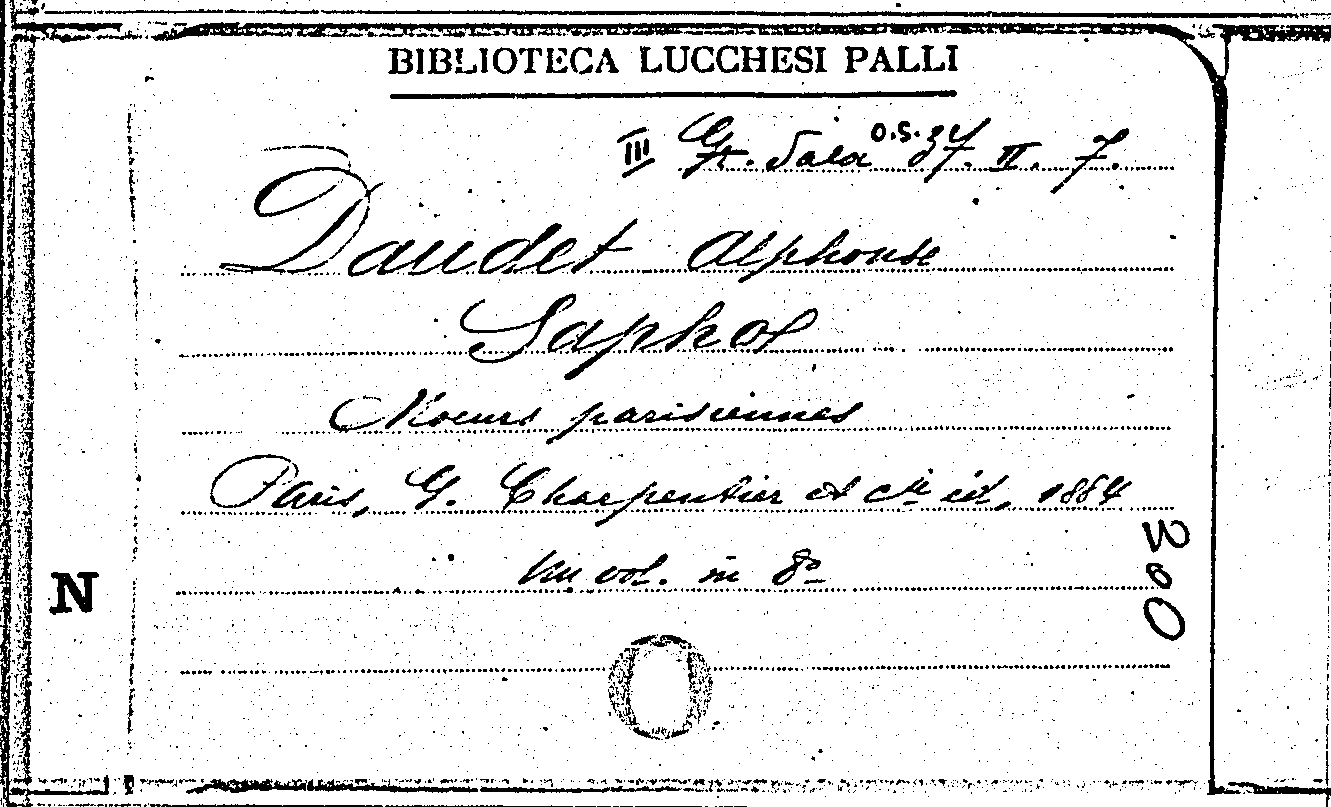 BIBLIOTECA LUCCHESI PALLI
III Gr. Sala O.S. 37. II. 7.
Daudet Alphonse
Sapho
Moeurs parisiennes
Paris, G. Charpentier et Cie éd, 1884
Un vol. in 8°
N
300